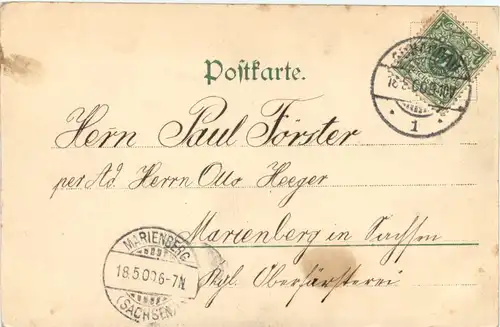 Postkarte.
18.5.00.9-10V.
1
Herrn Paul Förster
per Ad. Herrn Otto Heeger
Marienberg in Sachsen
Kgl. Oberförsterei.
MARIENBERG
18.5.00.6-7N
(SACHSEN)